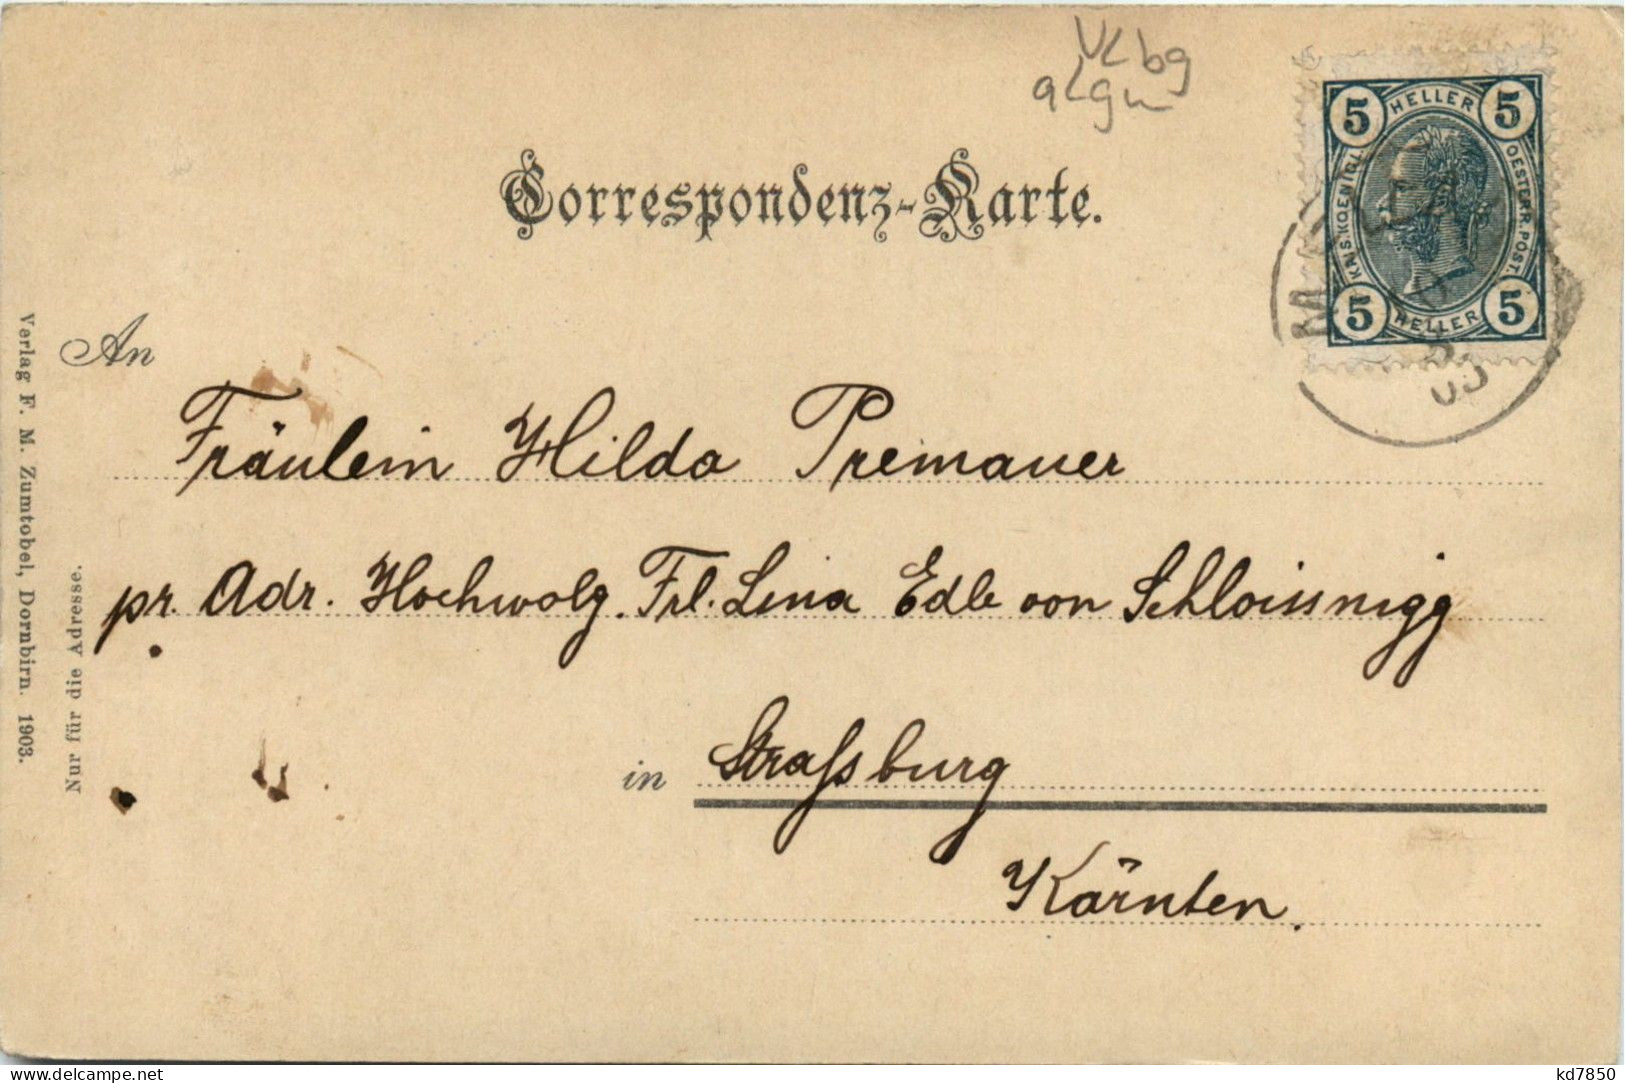 Vlbg
5 HELLER 5
KAIS. KOENIGL. OESTERR. POST.
5 HELLER 5
Correspondenz-Karte.
An
Fräulein Hilda Premauer
pr. Adr. Hochwolg. Frl. Lina Edle von Schloissnigg
in Strassburg
Kärnten.
Nur für die Adresse.
Verlag F. M. Zumtobel, Dornbirn. 1903.
www.delcampe.net
kd7850